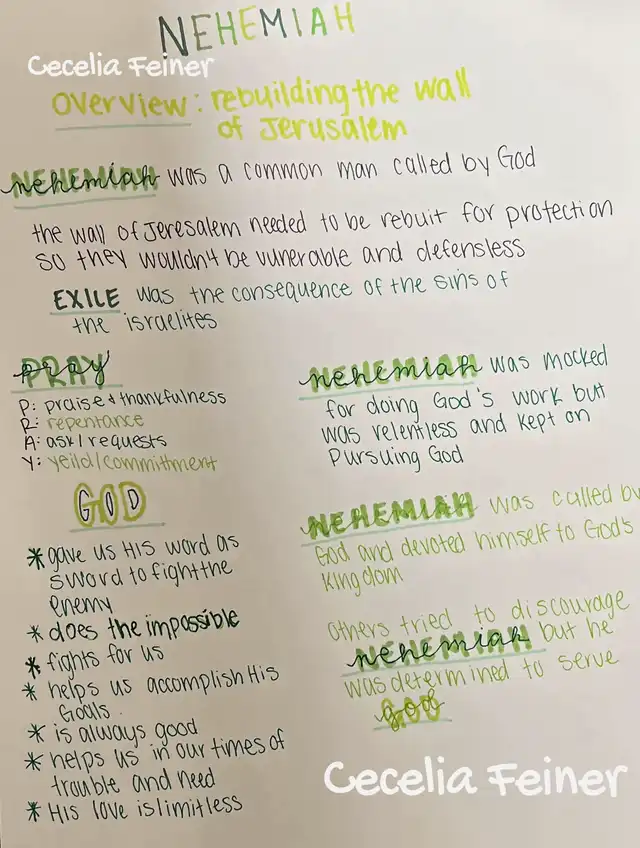 NEHEMIAH
Cecelia Feiner
Overview: rebuilding the wall
of Jerusalem
nehemiah was a common man called by God
the wall of Jeresalem needed to be rebuit for protection
so they wouldn't be vunerable and defensless
EXILE was the consequence of the sins of
the israelites
PRAY
P: praise & thankfulness
R: repentance
A: ask/requests
Y: yeild/commitment
GOD
* gave us His word as
sword to fight the
enemy
* does the impossible
* fights for us
* helps us accomplish His
Goals.
* is always good
* helps us in our times of
trouble and need
* His love is limitless
nehemiah was mocked
for doing God's work but
was relentless and kept on
Pursuing God
NEHEMIAH was called by
God and devoted himself to God's
Kingdom
Others tried to discourage
nehemiah but he
was determined to serve
GOD
Cecelia Feiner